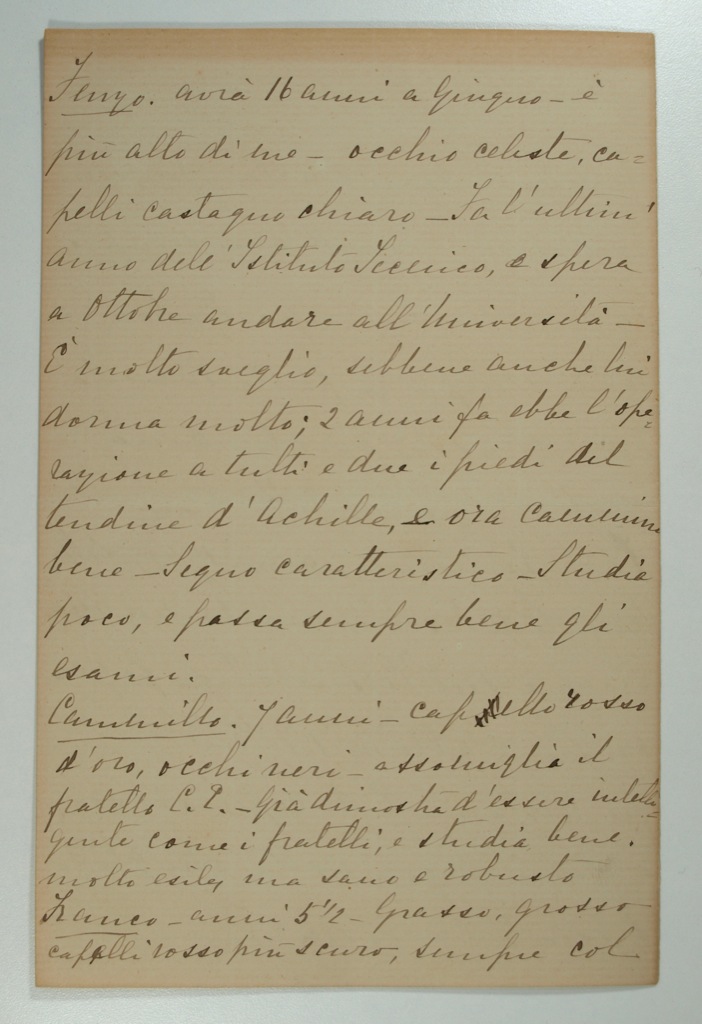 Fenzo. avrà 16 anni a Giugno – è
più alto di me – occhio celeste, ca=
pelli castagno chiaro – Fa l'ultim'
anno dell'Istituto Tecnico, e spera
a Ottobre andare all'Università –
È molto sveglio, sebbene anche lui
dorma molto; 2 anni fa ebbe l'ope=
razione a tutti e due i piedi del
tendine d'Achille, e ora cammina
bene – Segno caratteristico – Studia
poco, e passa sempre bene gli
esami.
Cammillo. 7 anni – capello rosso
d'oro, occhi neri – assomiglia il
fratello C. P. – Già dimostra d'essere intelli=
gente come i fratelli, e studia bene.
molto esile, ma sano e robusto
Franco – anni 5 1/2 – Grasso, grosso
capelli rosso più scuro, sempre col